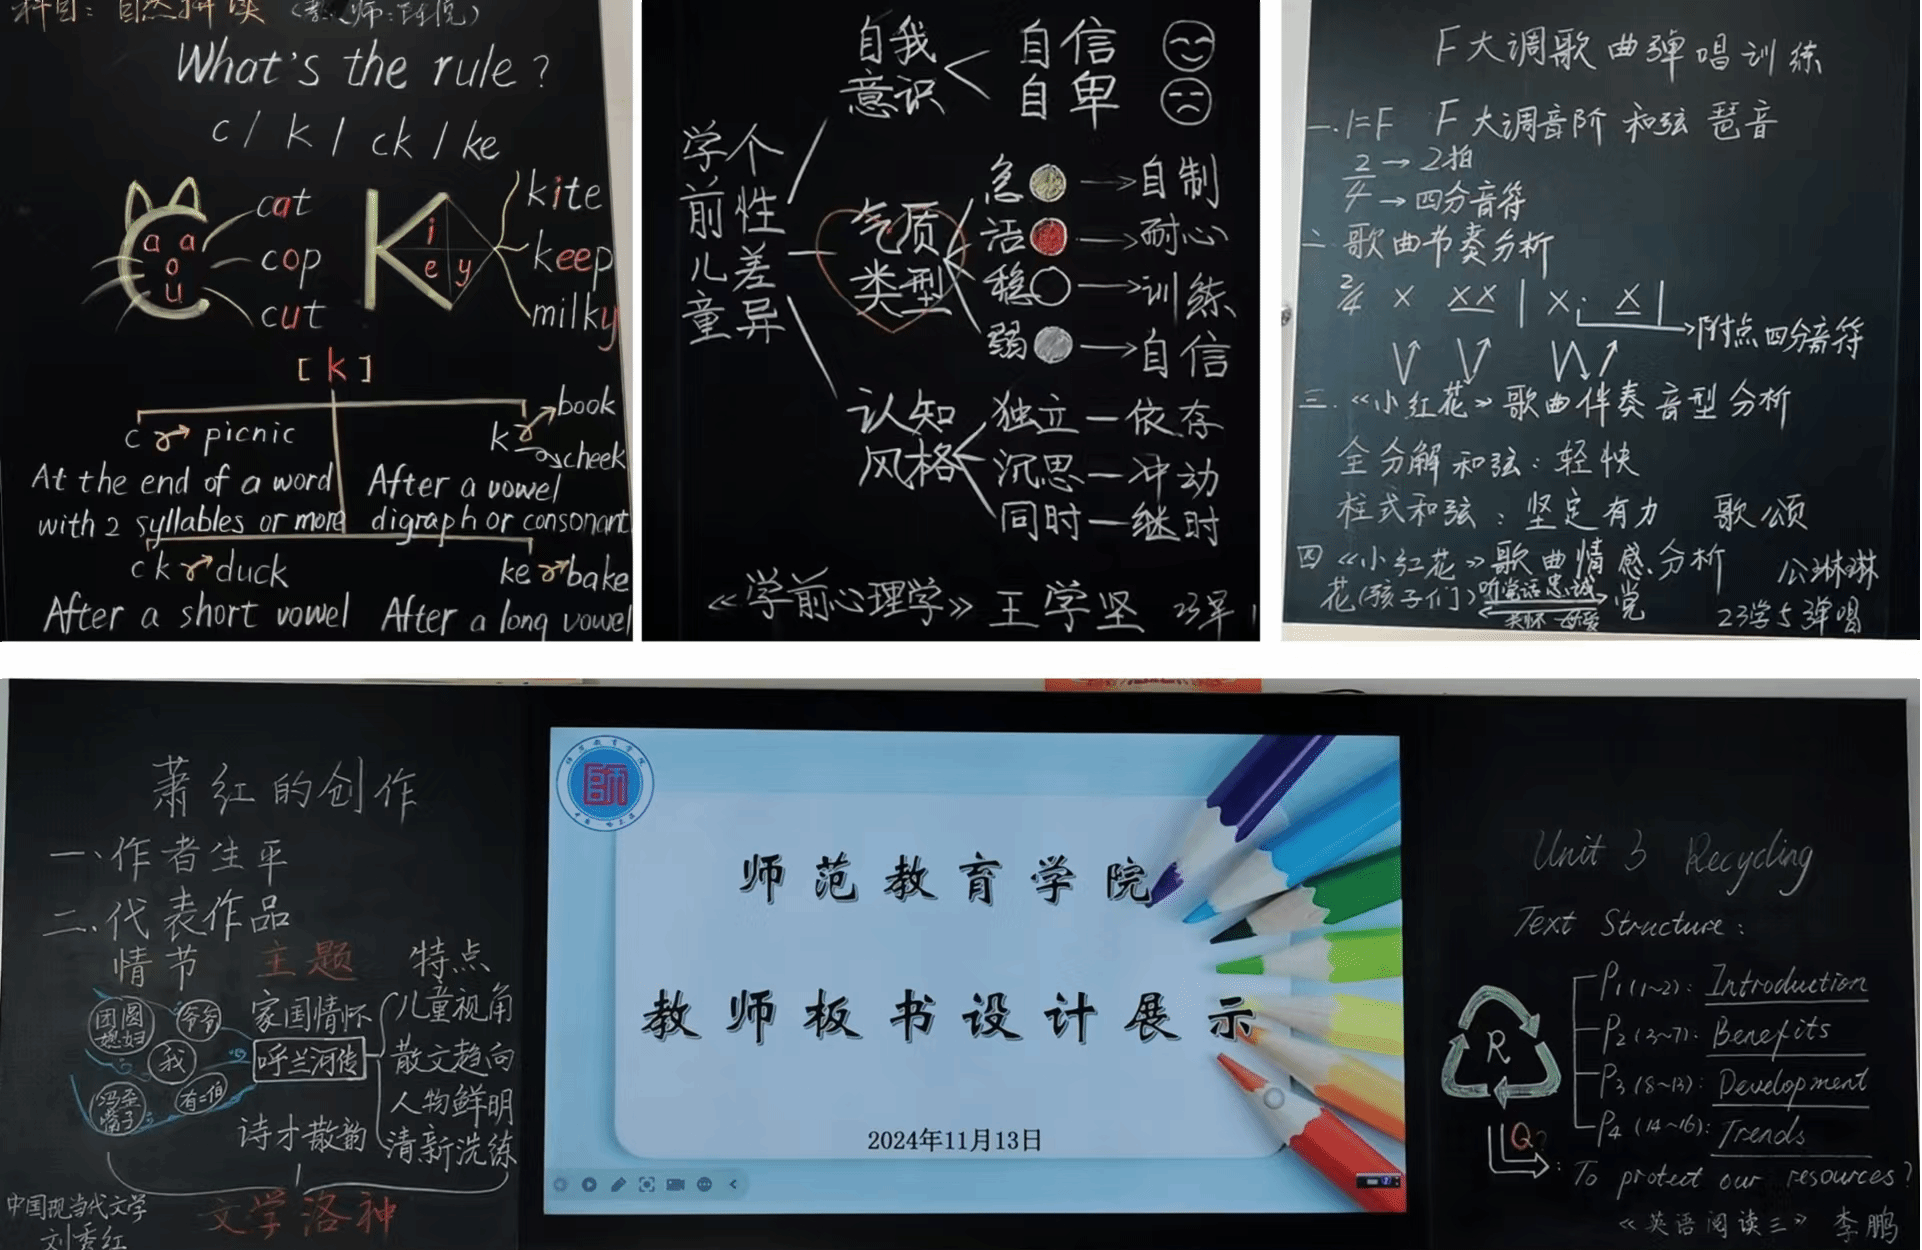 科目：自然拼读
What's the rule?
c / k / ck / ke
cat
a a
cop
o
u
cut
kite
i
keep
e y
milky
[k]
book
c picnic
k
cheek
At the end of a word
with 2 syllables or more
After a vowel
digraph or consonant
ck duck
ke bake
After a short vowel
After a long vowel
学前儿童
个性差异
自我
意识
自信
自卑
气质
类型
急 自制
活 耐心
稳 训练
弱 自信
认知
风格
独立—依存
沉思—冲动
同时—继时
《学前心理学》王学坚
F大调歌曲弹唱训练
一.1=F F大调音阶 和弦 琶音
2→2拍
4→四分音符
二.歌曲节奏分析
2/4 X XX | X. X |
附点四分音符
三.《小红花》歌曲伴奏音型分析
全分解和弦：轻快
柱式和弦：坚定有力 歌颂
四《小红花》歌曲情感分析
花(孩子们) 听党话忠诚 党
关怀 母爱
公琳琳
23学5弹唱
萧红的创作
一、作者生平
二、代表作品
情节 主题 特点
团圆
媳妇
爷爷
我
冯歪
嘴子
有二伯
家国情怀
呼兰河传
诗才散韵
儿童视角
散文趋向
人物鲜明
清新洗练
文学洛神
中国现当代文学
刘秀红
師
师范教育学院
教师板书设计展示
2024年11月13日
Unit 3 Recycling
Text Structure:
R
P1(1~2): Introduction
P2(3~7): Benefits
P3(8~13): Development
P4(14~16): Trends
Q?
: To protect our resources?
《英语阅读三》李鹏